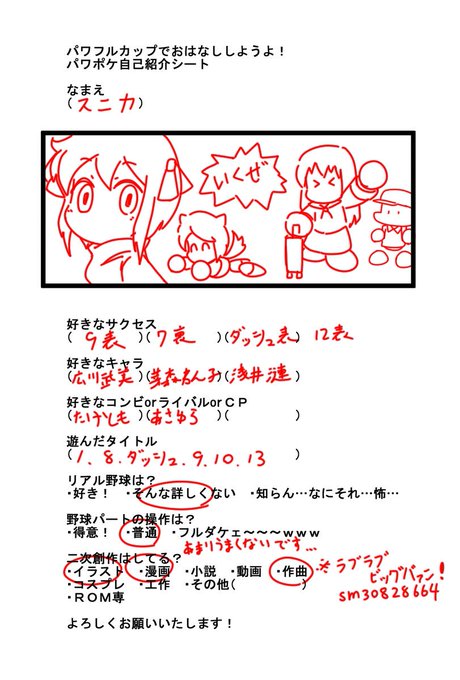 パワフルカップでおはなししようよ！
パワポケ自己紹介シート
なまえ
(スニカ)
いくぜ
好きなサクセス
(9表)(7裏)(ダッシュ表) 12表
好きなキャラ
(広川武美)(芹沢真央)(浅井漣)
好きなコンビorライバルorＣＰ
(たけとも)(あさゆら)( )
遊んだタイトル
(1、8、ダッシュ、9、10、13)
リアル野球は？
・好き！ ・そんな詳しくない ・知らん…なにそれ…怖…
野球パートの操作は？
・得意！ ・普通 ・フルダケェ～～～ｗｗｗ
あまりうまくないです…
二次創作はしてる？
・イラスト ・漫画 ・小説 ・動画 ・作曲 ※ラブラブビッグバァン！
・コスプレ ・工作 ・その他( ) sm30828664
・ＲＯＭ専
よろしくお願いいたします！